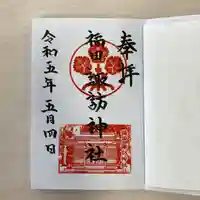 奉拝
福田諏訪神社
令和五年五月四日